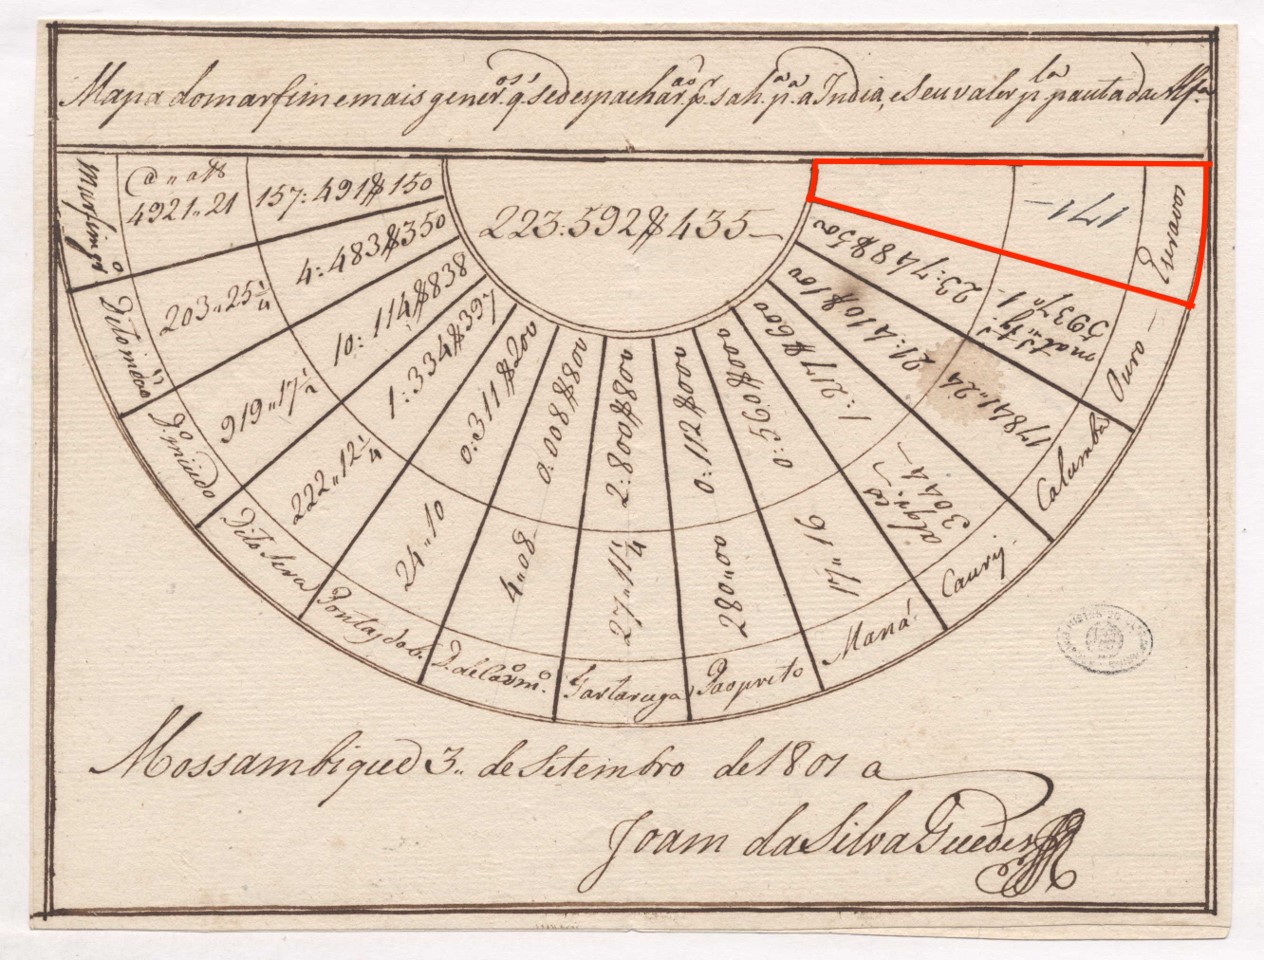 Mapa do marfim e mais gener.os q̃ se despachar.ão p.r sah.a p.a a India, e seu valor p.la pauta da Alf.a
223:592$435
Marfim gr.o
@ „ a lb
4921 „ 21
157:491$150
Dito meão
203 „ 25 1/4
4:483$350
D.o miudo
919 „ 17 1/2
10:114$838
Dito Sera
222 „ 12 1/4
1:334$397
24 „ 10
0:311$200
4 „ 08
0:008$800
Tartaruga
27 „ 11 1/4
2:800$800
Pao preto
280 „ 00
0:112$000
Maná
17 „ 16
0:560$000
Caurij
3044
1:217$600
Calumba
17841 „ 24
21:410$100
Ouro
5937
23:748$50
Escravos
171
Mossambique 3 „ de Setembro de 1801 a
Joam da Silva Guedes